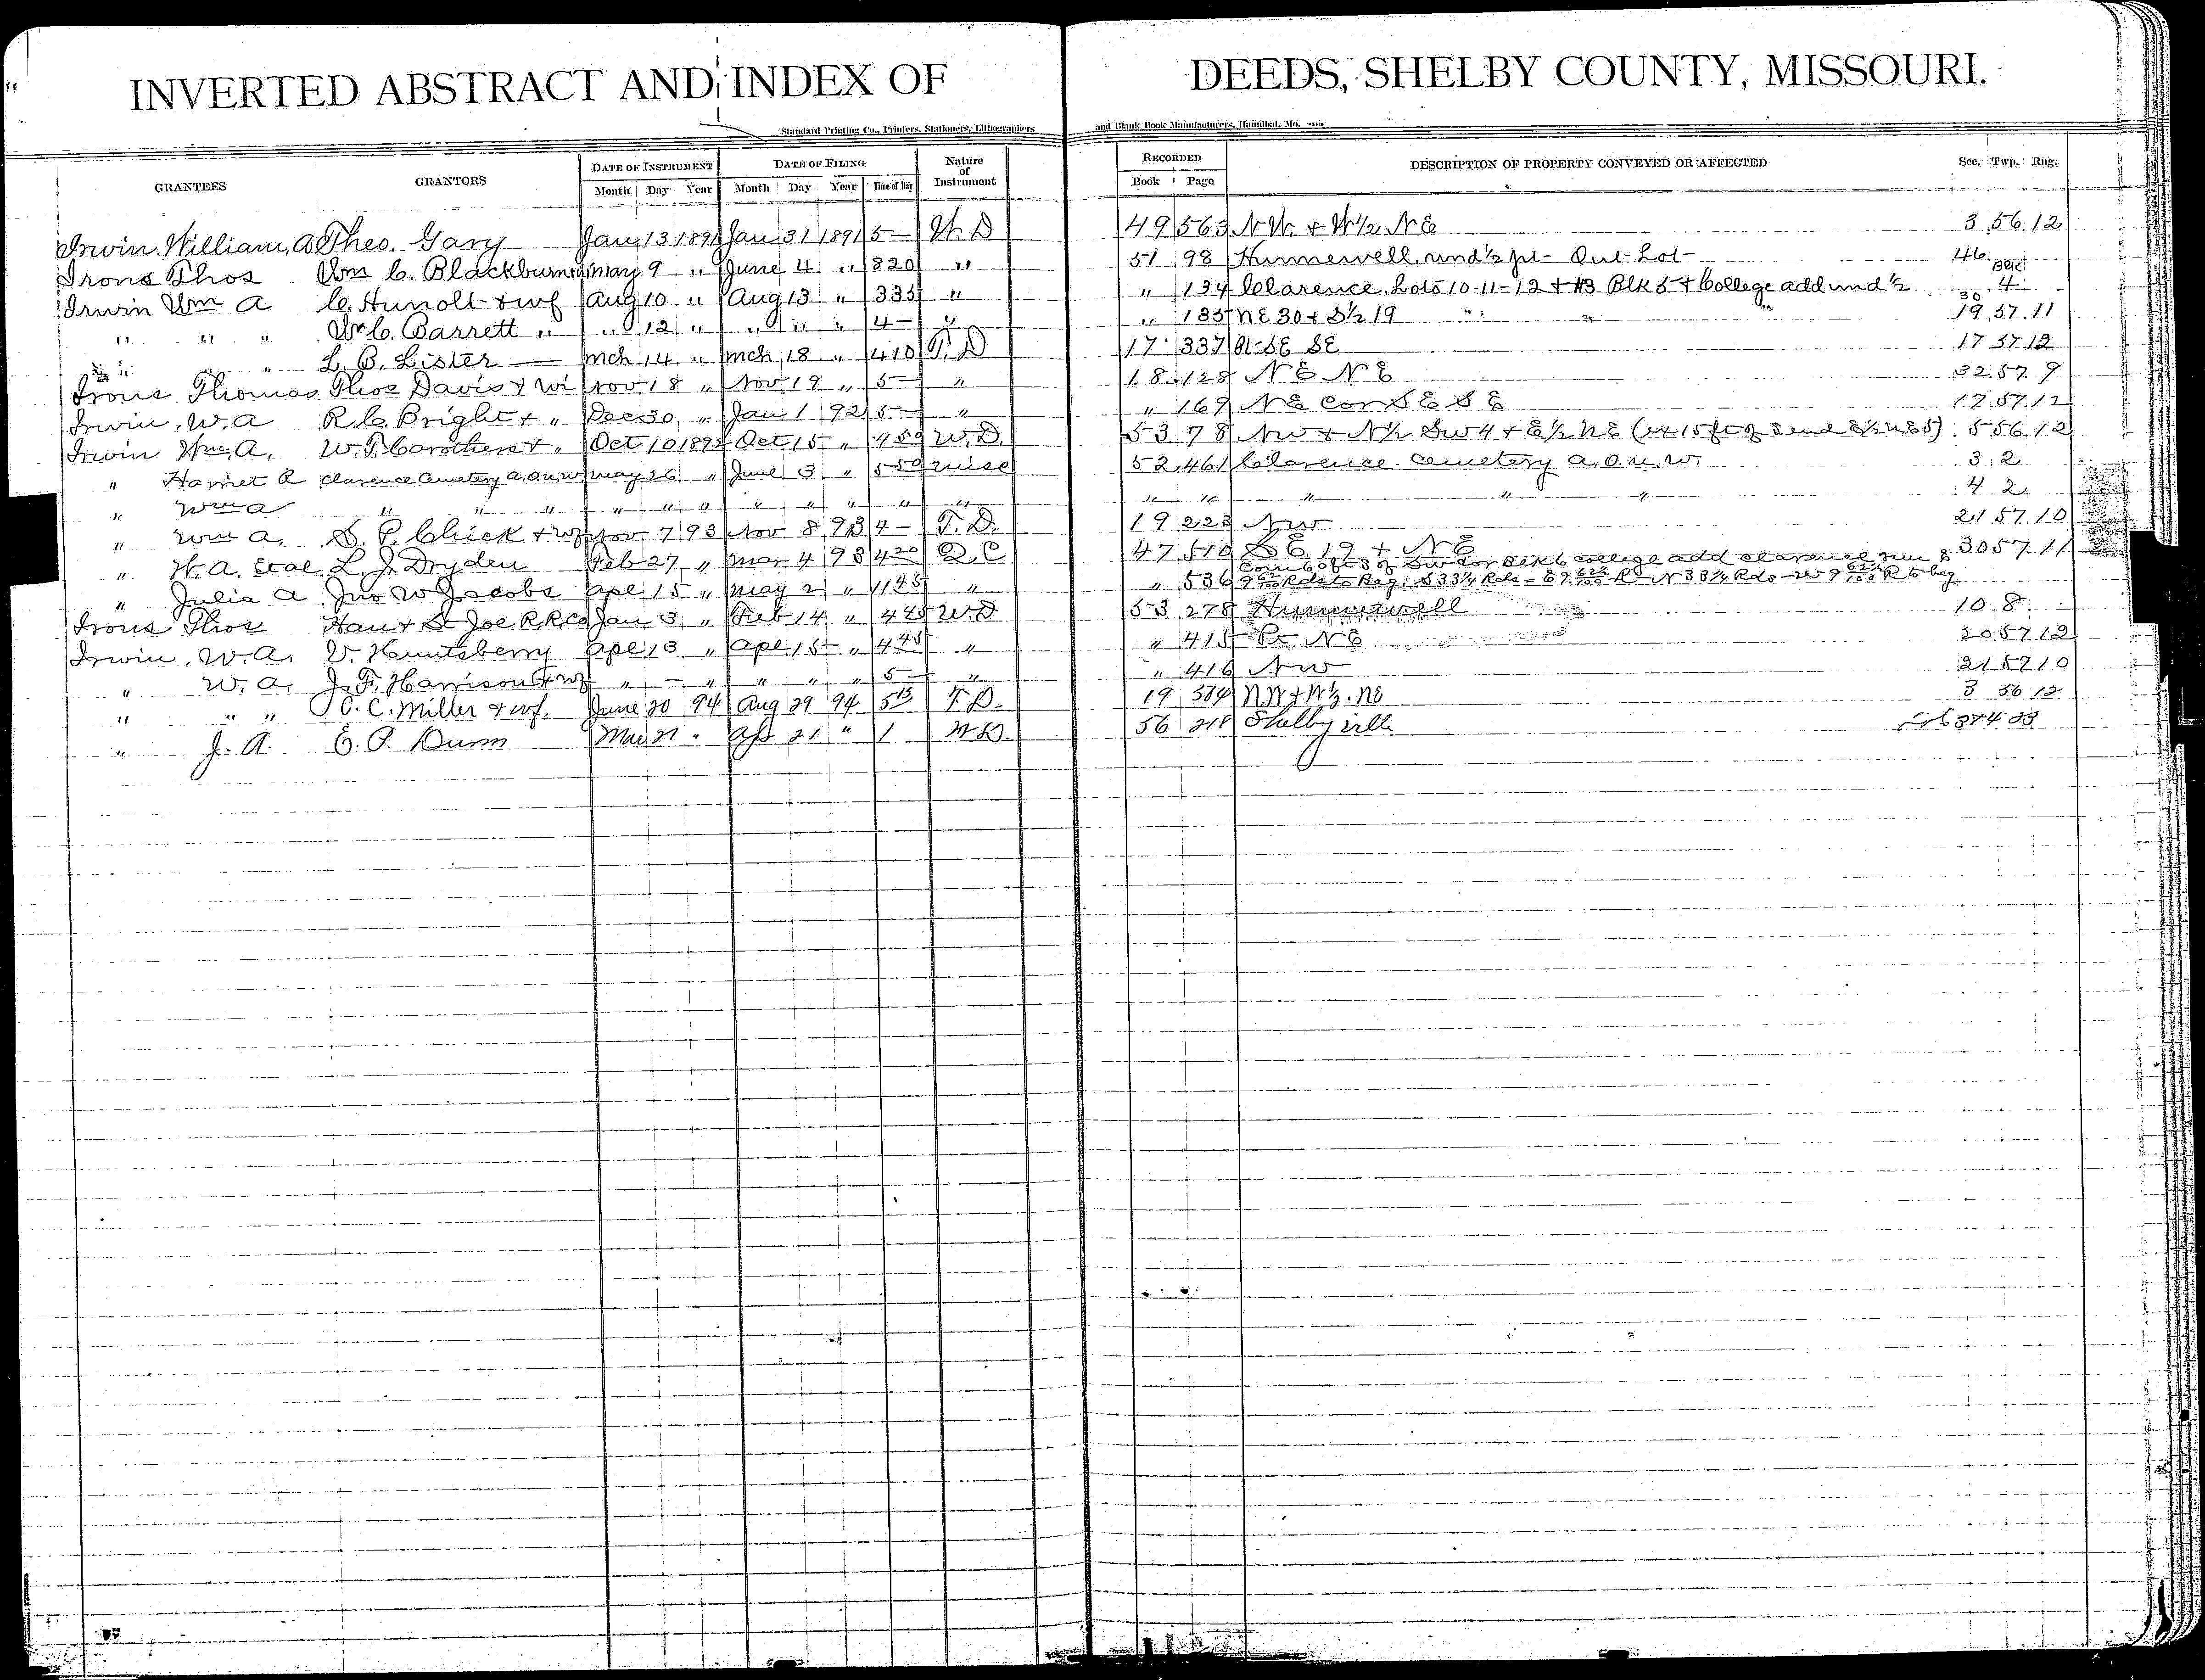 INVERTED ABSTRACT AND INDEX OF DEEDS, SHELBY COUNTY, MISSOURI.
Standard Printing Co., Printers, Stationers, Lithographers and Blank Book Manufacturers, Hannibal, Mo.
GRANTEES GRANTORS DATE OF INSTRUMENT DATE OF FILING Nature of Instrument RECORDED DESCRIPTION OF PROPERTY CONVEYED OR AFFECTED Sec. Twp. Rng.
Month Day Year Month Day Year Time of Day Book Page
Irwin, William, A Theo. Gary Jan 13 1891 Jan 31 1891 5— W. D 49 563 N W. + W 1/2 N E 3 56 12
Irons Thos Wm C. Blackburn May 9 " June 4 " 820 " 51 98 Hunnewell, und 1/2 pt- Out-Lot- 46
Irwin Wm A C. Hunolt + wf Aug 10 " Aug 13 " 335 " " 134 Clarence. Lots 10-11-12 + #3 Blk 5 + College add und 1/2 Blk 4
" " " W C. Barrett " " 12 " " " " 4— " " 135 N E 30 + S 1/2 19 " " 30 19 57 11
" " " L. B. Lister — Mch 14 " Mch 18 " 410 T. D 17 337 Pt SE SE 17 57 12
Irons Thomas Thos Davis + Wi Nov 18 " Nov 19 " 5— " 18 128 N E N E 32 57 9
Irwin, W. A R. C. Bright + " Dec 30 " Jan 1 92 5— " " 169 N E cor S E S E 17 57 12
Irwin Wm, A. W. T. Carothers + " Oct 10 1892 Oct 15 " 450 W. D. 53 78 NW + N 1/2 SW 4 + E 1/2 N E ( 15 ft of S end E 1/2 N E 5) 5 56 12
" Harriet R Clarence Cemetery A. O. U. W. May 26 " June 3 " 550 Misc 52 461 Clarence Cemetery A. O. U. W. 3 2
" Wm A " " " " " " " " " " " " " " " " 4 2
" Wm A. S. P. Chick + wf Nov 7 93 Nov 8 93 4— T. D. 19 223 NW 21 57 10
" W. A. et al L. J. Dryden Feb 27 " Mar 4 93 420 Q C 47 510 S E 19 + N E 30 57 11
" Julia A Jno W Jacobs Apl 15 " May 2 " 1145 " " 536 Com 60 ft S of SW cor Blk 6 College add Clarence run S
9 Rds to Beg; S 33 1/4 Rds - E 9 R - N 33 1/4 Rds - W 9 R to beg
Irons Thos Han + St Joe R. R. Co Jan 3 " Feb 14 " 445 W. D 53 278 Hunnewell 10 8
Irwin, W. A. V. Huntsberry Apl 13 " Apl 15 " 445 " " 415 Pt N E 20 57 12
" W. A. J. F. Harrison + wf " — " " " " 5— " " 416 NW 21 57 10
" " " C. C. Miller + wf. June 20 94 Aug 29 94 515 T. D. 19 584 N W + W 1/2 . NE 3 56 12
" J. A. E. P. Dunn Mar 21 " Apr 21 " 1 W D. 56 218 Shelbyville